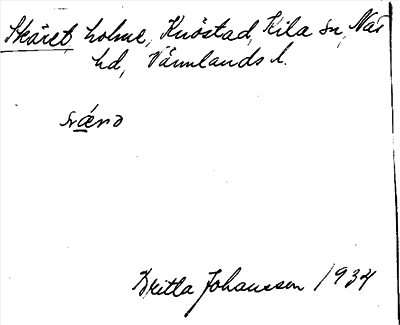 Skäret, holme, Knöstad, Kila sn, Näs
hd, Värmlands l.
Britta Johansson 1934